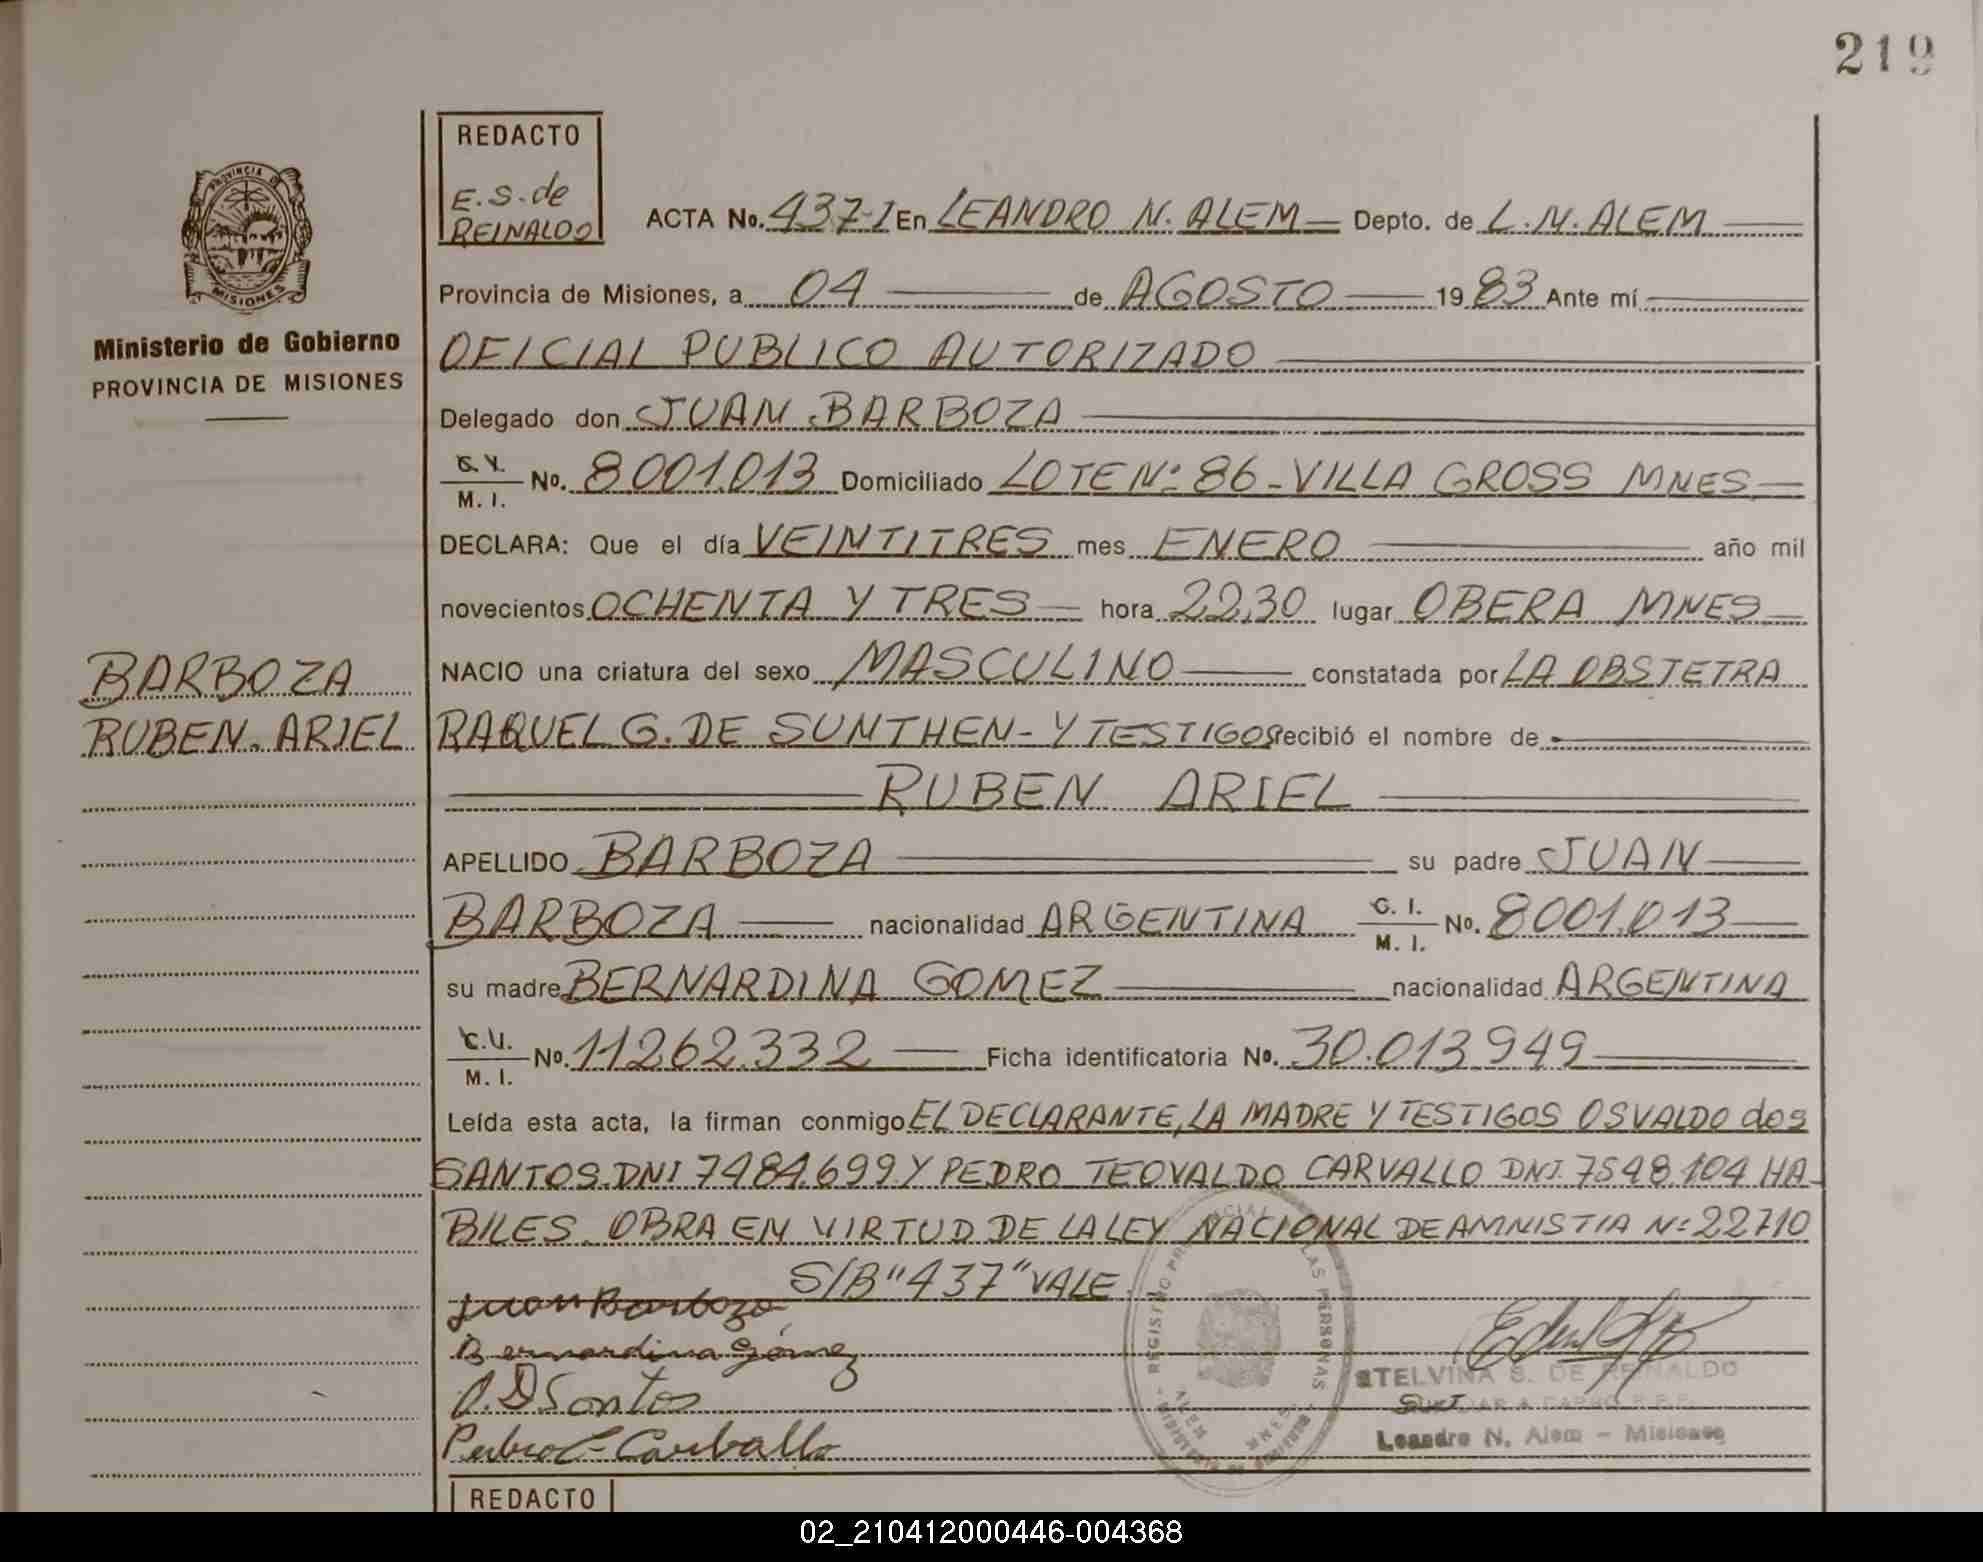 219
REDACTO
E.S. de
REINALDO
PROVINCIA DE
MISIONES
Ministerio de Gobierno
PROVINCIA DE MISIONES
ACTA No. 437-I En LEANDRO N. ALEM Depto. de L.N. ALEM
Provincia de Misiones, a 04 de AGOSTO 1983 Ante mí
OFICIAL PUBLICO AUTORIZADO
Delegado don JUAN BARBOZA
M. I. No. 8001.013 Domiciliado LOTE Nº 86 - VILLA GROSS MNES
DECLARA: Que el día VEINTITRES mes ENERO año mil
novecientos OCHENTA Y TRES hora 22,30 lugar OBERA MNES
NACIO una criatura del sexo MASCULINO constatada por LA OBSTETRA
RAQUEL G. DE SUNTHEN - Y TESTIGOS recibió el nombre de
RUBEN ARIEL
BARBOZA
RUBEN ARIEL
APELLIDO BARBOZA su padre JUAN
BARBOZA nacionalidad ARGENTINA C. I. M. I. No. 8001.013
su madre BERNARDINA GOMEZ nacionalidad ARGENTINA
M. I. No. 11262.332 Ficha identificatoria No. 30.013.949
Leída esta acta, la firman conmigo EL DECLARANTE, LA MADRE Y TESTIGOS OSVALDO dos
SANTOS. DNI 7484.699 Y PEDRO TEOVALDO CARVALLO DNI. 7548.104 HA-
BILES. OBRA EN VIRTUD DE LA LEY NACIONAL DE AMNISTIA Nº 22710
S/B "437" VALE
Juan Barboza
Bernardina Gómez
O. D Santos
Pedro Carballo
REGISTRO LAS PERSONAS
ALEM
MNES.
ETELVINA S. DE REINALDO
Leandro N. Alem - Misiones
REDACTO
02_210412000446-004368